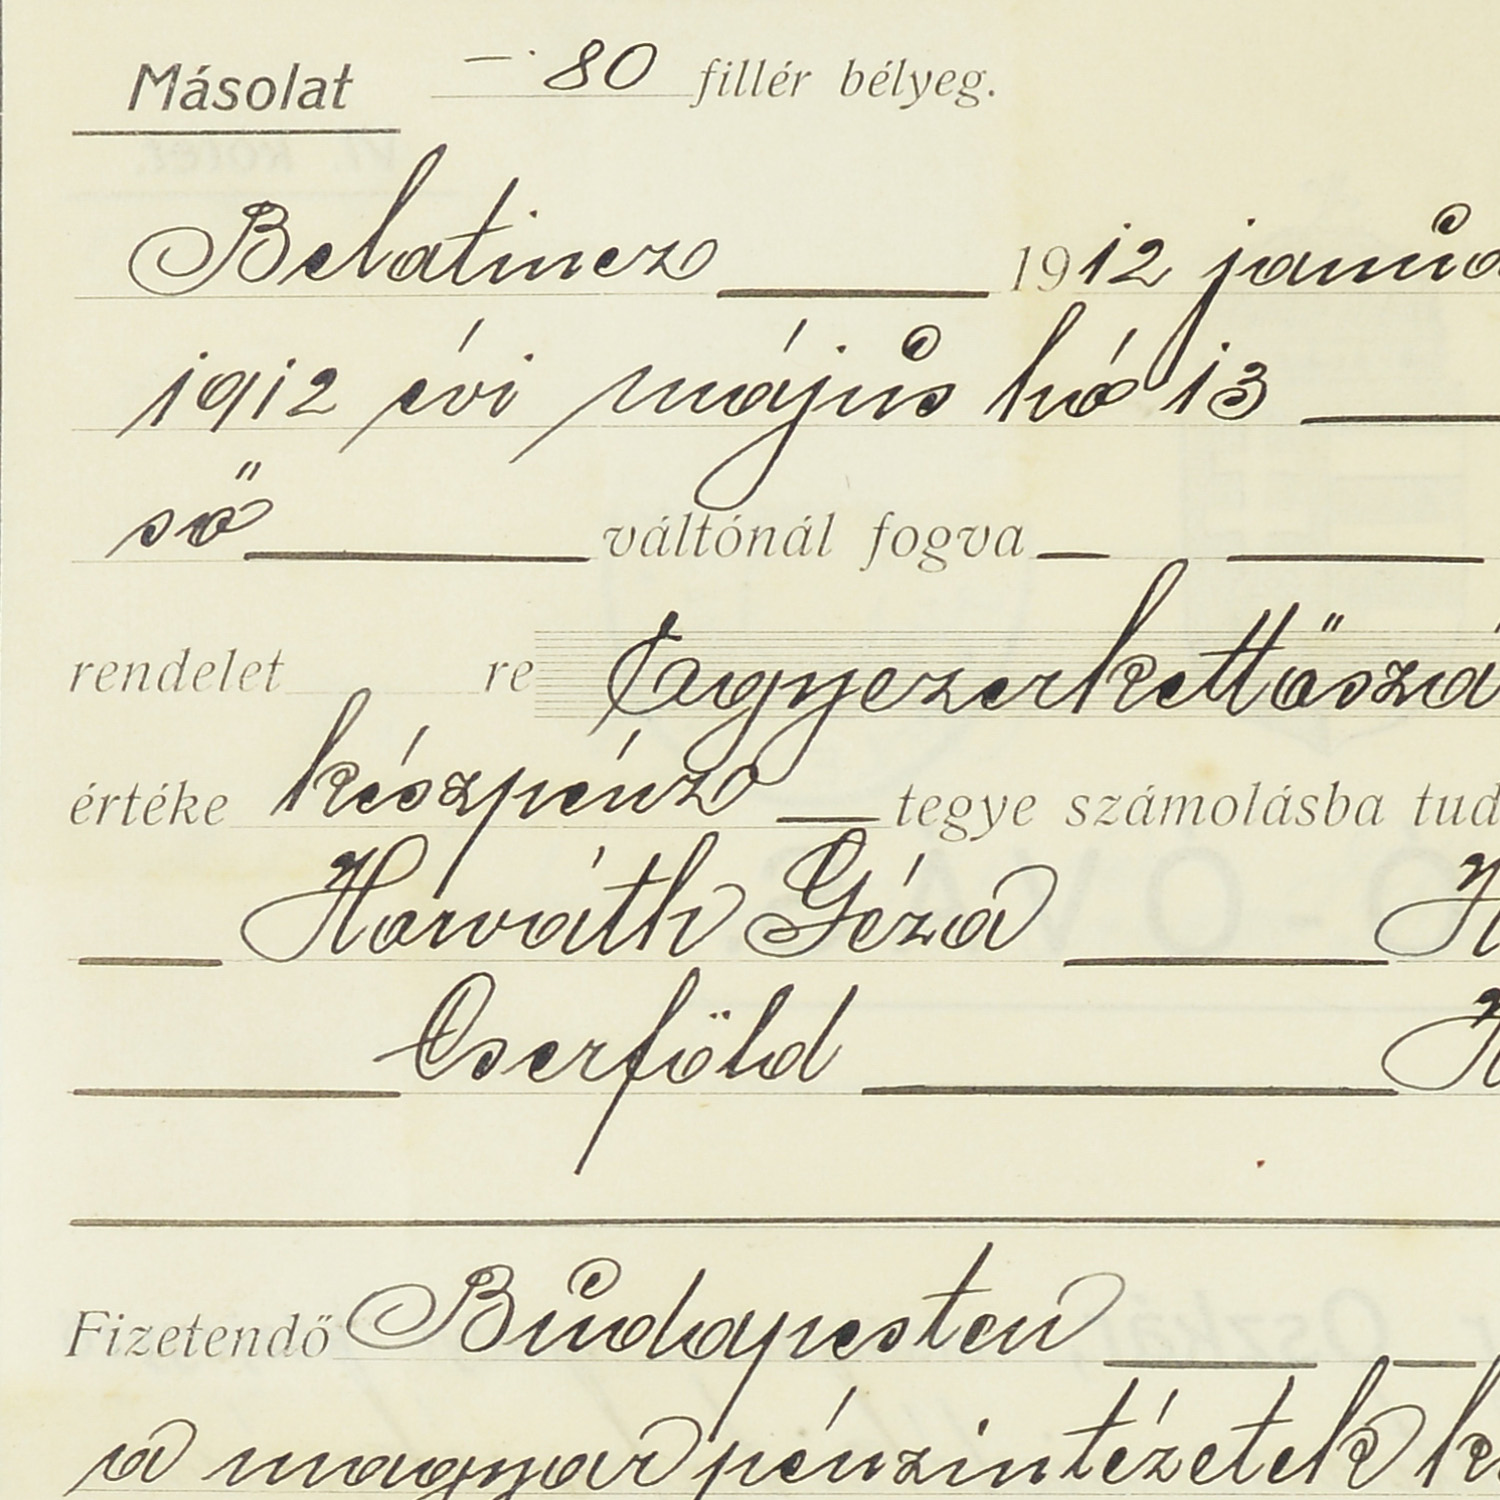 Másolat —· 80 fillér bélyeg.
Belatincz 1912 januá
1912 évi május hó 13
ső váltónál fogva
rendelet re Egyezerkettőszá
értéke készpénz tegye számolásba tud
Horváth Géza H
Cserföld H
Fizetendő Budapesten
a magyar pénzintézetek k